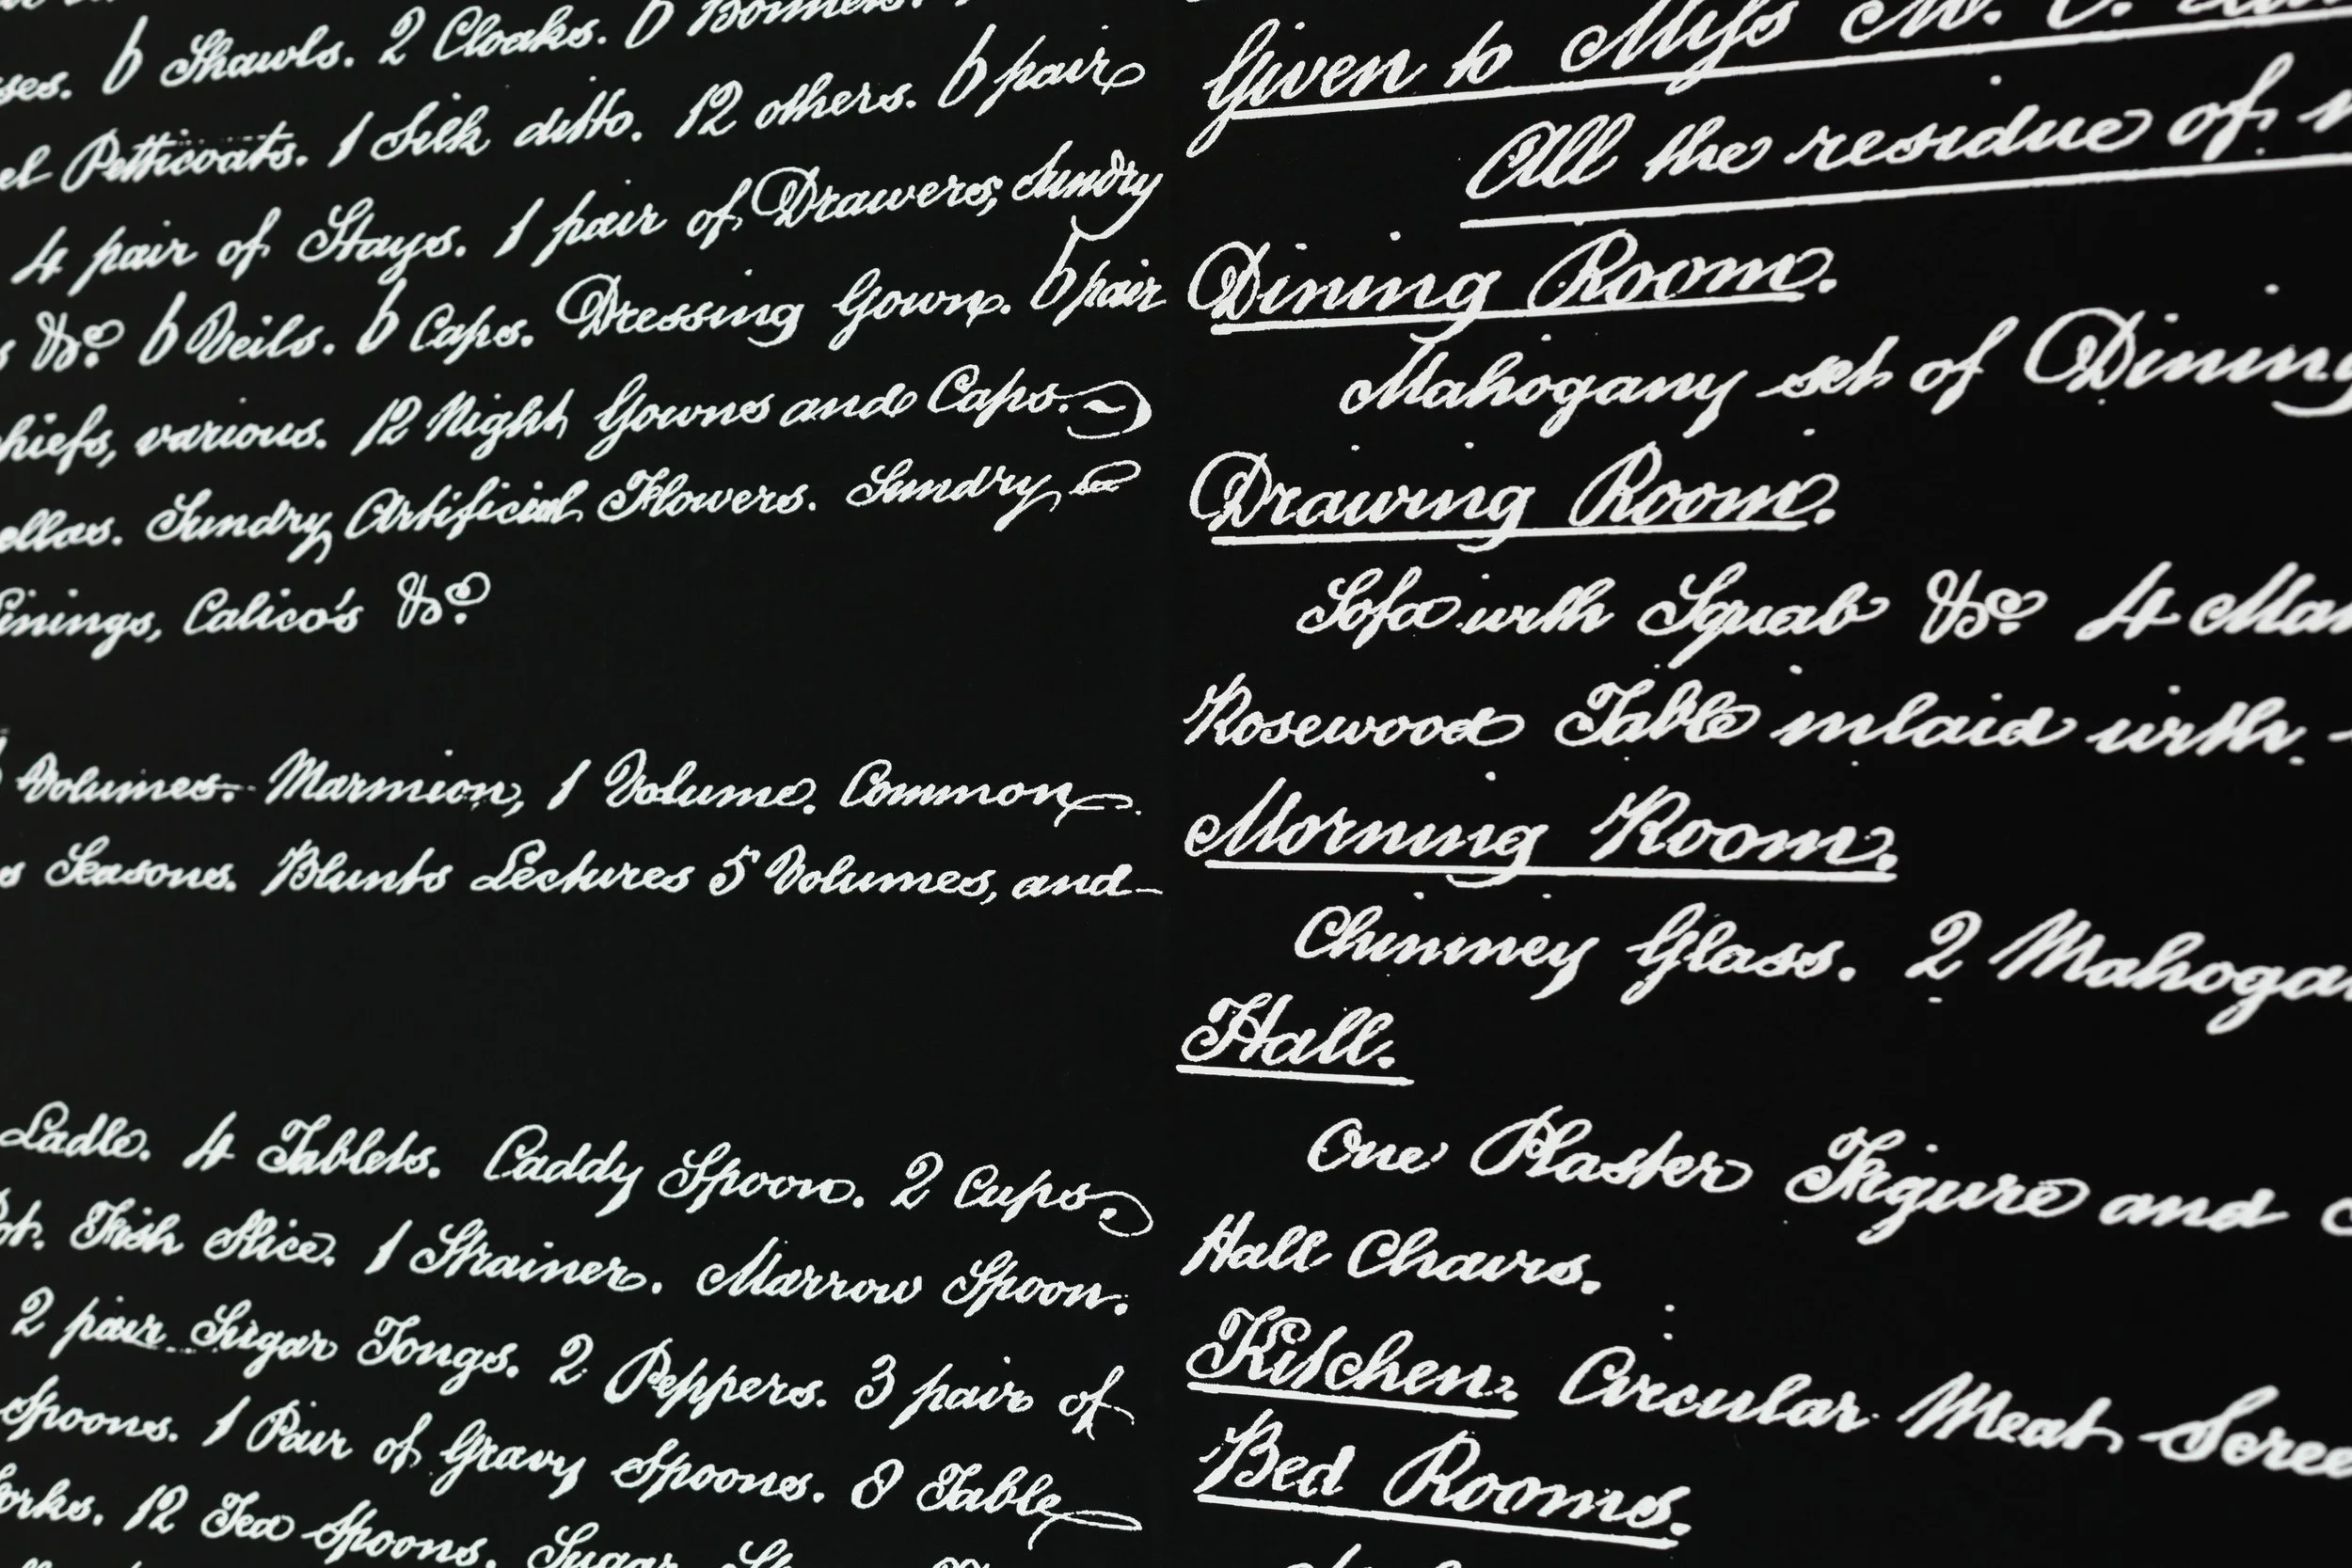 6 Shawls. 2 Cloaks. 6 Bonnets.
Petticoats. 1 Silk ditto. 12 others. 6 pair
4 pair of Stays. 1 pair of Drawers, Sundry
&c. 6 Veils. 6 Caps. Dressing Gown. 6 pair
various. 12 Night Gowns and Caps.
Sundry Artificial Flowers. Sundry
Calico's &c.
Volumes. Marmion, 1 Volume. Common
Seasons. Blunts Lectures 5 Volumes, and
Ladle. 4 Tablets. Caddy Spoon. 2 Cups
Fish Slice. 1 Strainer. Marrow Spoon.
2 pair Sugar Tongs. 2 Peppers. 3 pair of
Spoons. 1 Pair of Gravy Spoons. 8 Table
12 Tea Spoons. Sugar
Given to Miss M. C.
All the residue of
Dining Room.
Mahogany set of Dining
Drawing Room.
Sofa with Squab &c. 4
Rosewood Table inlaid with
Morning Room.
Chimney Glass. 2
Hall.
One Plaster Figure and
Hall Chairs.
Kitchen: Circular Meat
Bed Rooms.